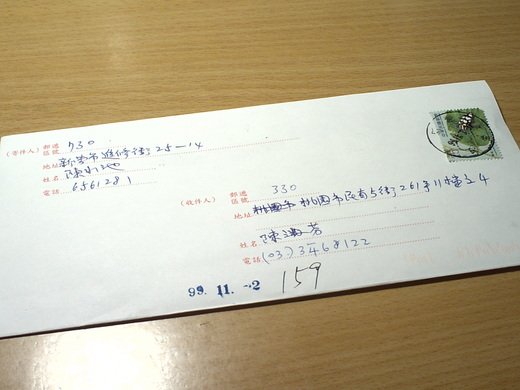 (寄件人) 郵遞區號 730
地址 新營市進修街25-14
姓名 陳
電話 6561281
(收件人) 郵遞區號 330
地址 桃園市 桃園市民有5街261号11樓之4
姓名 陳 芳
電話 (03)3468122
99. 11. -2
159